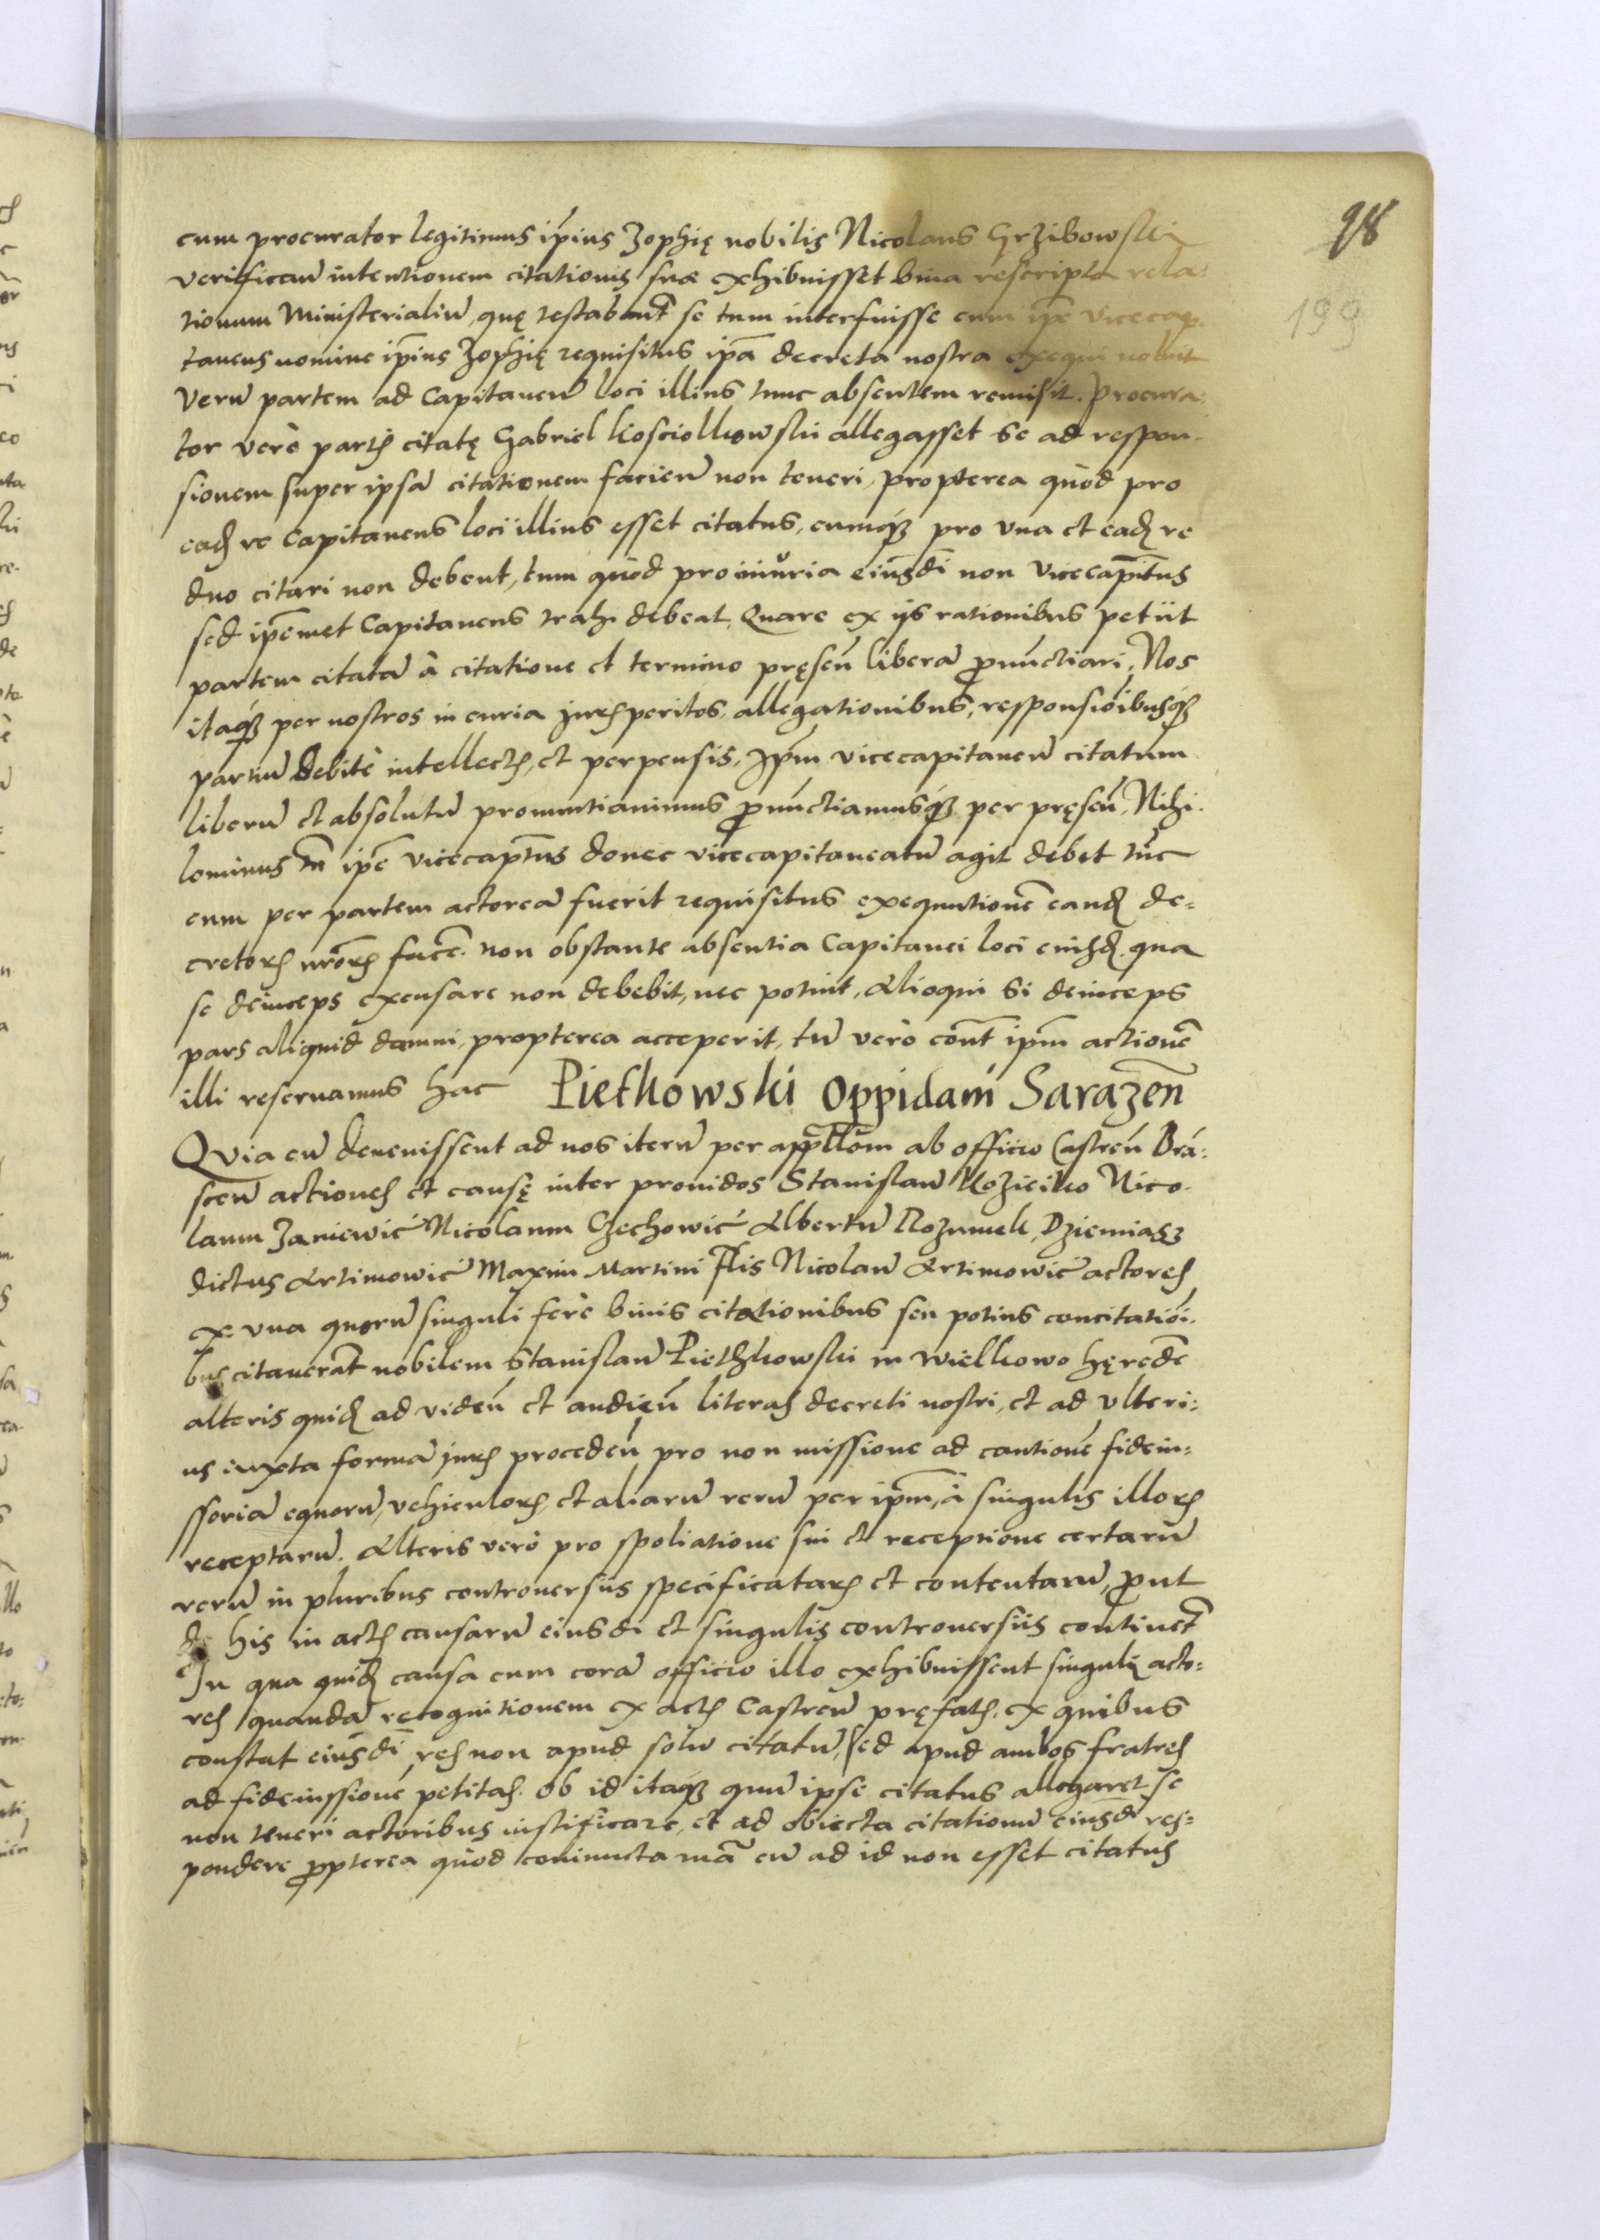 98
199
cum procurator legitimus ip̃ius Zophię nobilis Nicolaus Grzibowski
verificañ intentionem citationis suæ exhibuisset bina rescripta rela:
tionum Ministerialiũ, quę testabant̃ se tum interfuisse cum ip̃e vicecap:
taneus nomine ip̃ius Zophię requisitus ip̃a decreta nostra exequi noluit
Verũ partem ad Capitaneũ loci illius tunc absentem remisit. Procura:
tor verò partis citatę Gabriel Kosciolkowski allegasset se ad respon-
sionem super ipsã citationem facieñ non teneri, propterea quòd pro
eadẽ re Capitaneus loci illius esset citatus, cumq́ꝫ pro vna et eadẽ re
duo citari non debent, tum quòd pro iniuria eiusd̃i non vicecap̃tus
sed ip̃emet Capitaneus trahi debeat. Quare ex ijs rationibus petijt
partem citatã à citatione et termino pręseñ liberã p̃nunctiari. Nos
itaq́ꝫ per nostros in curia juris peritos, allegationibus, responsioĩbusq́ꝫ
partiũ debitè intellectis, et perpensis. Ip̃m vicecapitaneũ citatum
liberũ et absolutũ pronuntiauimus p̃nunctiamusq́ꝫ per pręseñ. Nihi-
lominus tñ ip̃e vicecap̃tus donec vicecapitaneatũ agit debet tũc
cum per partem actoreã fuerit requisitus exequutionẽ eandẽ de:
cretorũ nr̃orũ facẽ. non obstante absentia Capitanei loci eiusdẽ. qua
se deinceps excusare non debebit, nec poterit, Alioqui si deinceps
pars aliquid damni, propterea acceperit, tũ verò cont̃ ip̃m actionẽ
illi reseruamus hac Pietkowski Oppidani Sarazeñ
Quia cũ deuenissent ad nos iterũ per app̃llõm ab officio Castreñ Brã:
sceñ actiones et causę inter prouidos Stanislaũ Kozieiko Nico-
laum Zaniewic Nicolaum Czechowic Albertũ Rozumek, Dziemiasz
dictus Artimowic Maxim Martini fl̃is Nicolaũ Artimowic actores
ex vna quorũ singuli ferè binis citationibus seu potius concitatioĩ:
bus citauerãt nobilem Stanislaũ Pietzkowski in Wielkowo hęredẽ
alteris quidẽ ad videñ et audieñ literas decreti nostri, et ad vlteri:
us iuxta formã juris procedeñ pro non missione ad cautionẽ fideiu:
ssoriã equorũ, vehiculorũ, et aliarũ rerũ per ip̃m, à singulis illorũ
receptarũ. Alteris verò pro spoliatione sui et receptione certarũ
rerũ in pluribus controuersiis specificatarũ et contentarũ, p̃ut
de his in actis causarũ eiusd̃i et singulis controuersiis continet̃
In qua quidẽ causa cum corã officio illo exhibuissent singuli acto:
res quandã recognitionem ex actis Castreñ pręfatis. ex quibus
constat eiusd̃i res non apud solũ citatũ, sed apud ambos fratres
ad fideiussionẽ petitas. Ob id itaq́ꝫ quũ ipse citatus allegaret se
non teneri actoribus iustificare, et ad obiecta citationũ eiusd̃i res:
pondere p̃pterea quòd coniuncta manũ cũ ad id non esset citatus